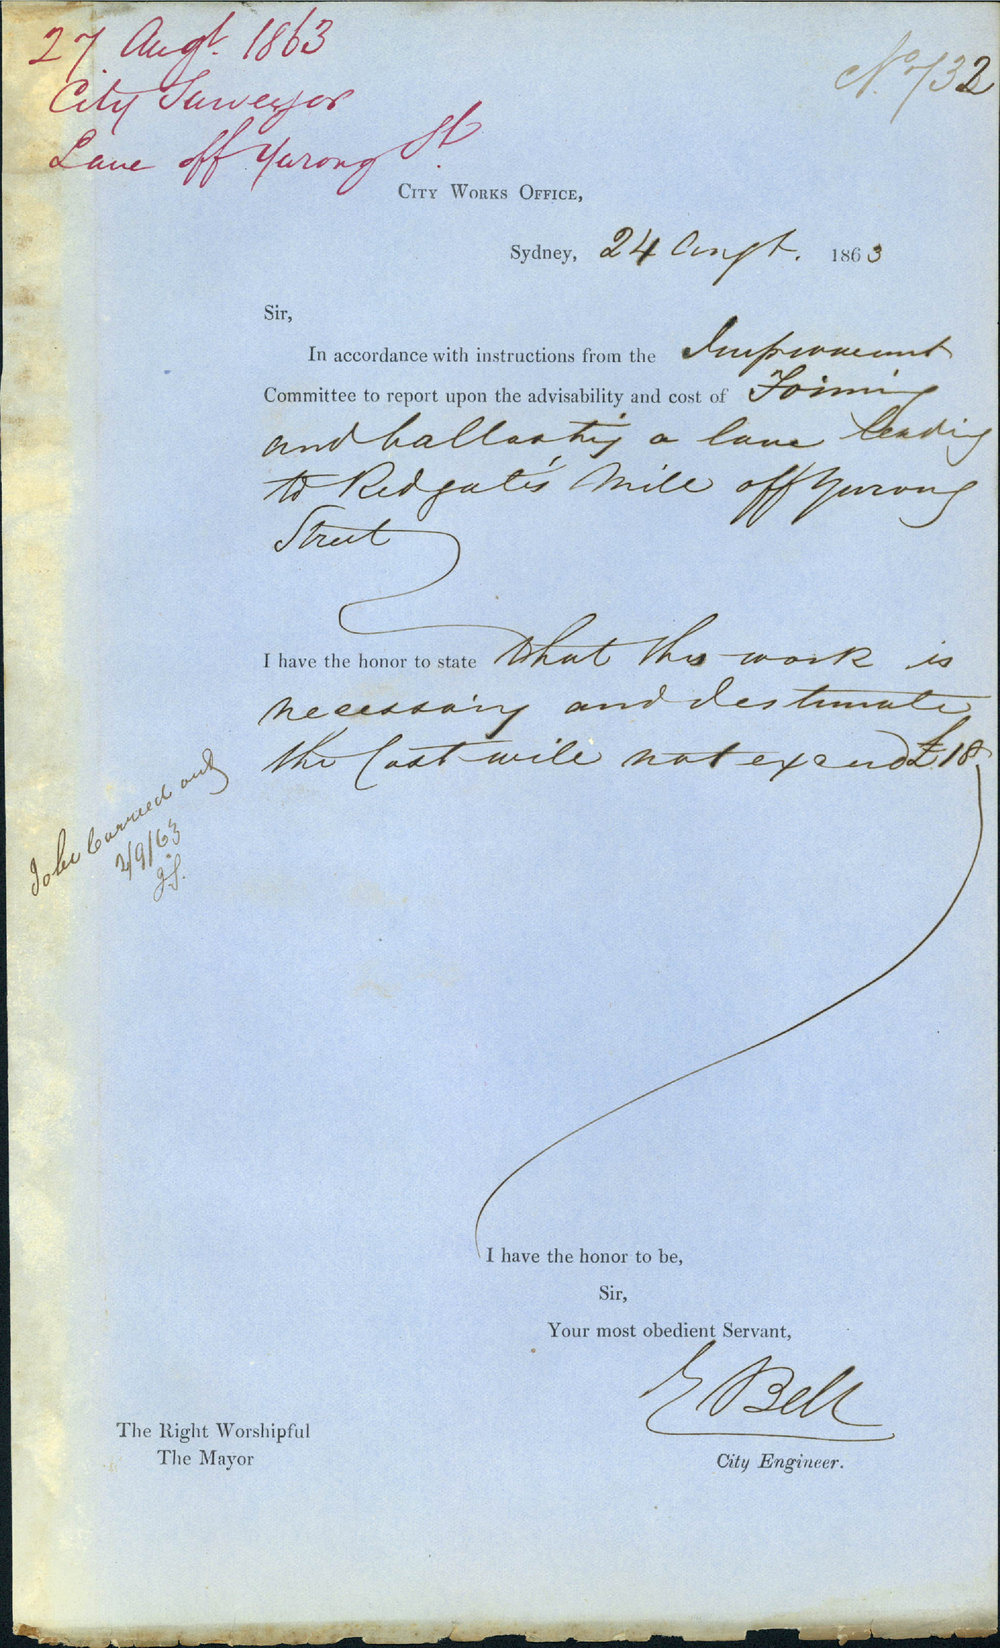 27 Augt. 1863
City Surveyor
Lane off Yurong St.
No. 732
City Works Office,
Sydney, 24 Augt. 1863
Sir,
In accordance with instructions from the Improvement
Committee to report upon the advisability and cost of Forming
and ballasting a lane leading
to Redgate's Mill off Yurong
Street
I have the honor to state that this work is
necessary and I estimate
the Cost will not exceed £18
To be Carried out
2/9/63
J.S.
I have the honor to be,
Sir,
Your most obedient Servant,
E Bell
City Engineer.
The Right Worshipful
The Mayor